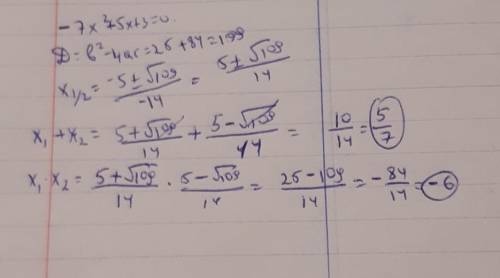 -7x²+5x+3=0.
D=b²-4ac=25+84=109
x₁/₂ = (-5±√109)/(-14) = (5±√109)/14
x₁+x₂ = (5+√109)/14 + (5-√109)/14 = 10/14 = 5/7
x₁·x₂ = (5+√109)/14 · (5-√109)/14 = (25-109)/14 = -84/14 = -6